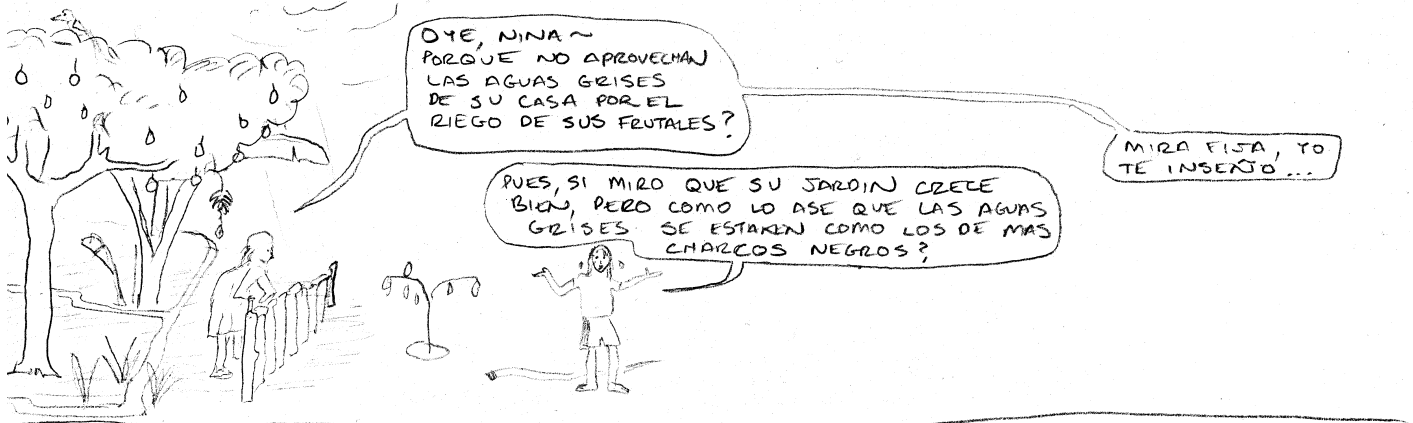 OYE, NINA~
PORQUE NO APROVECHAN
LAS AGUAS GRISES
DE SU CASA POR EL
RIEGO DE SUS FRUTALES?
PUES, SI MIRO QUE SU JARDIN CRECE
BIEN, PERO COMO LO ASE QUE LAS AGUAS
GRISES SE ESTAKEN COMO LOS DE MAS
CHARCOS NEGROS?
MIRA FIJA, YO
TE INSEÑO...